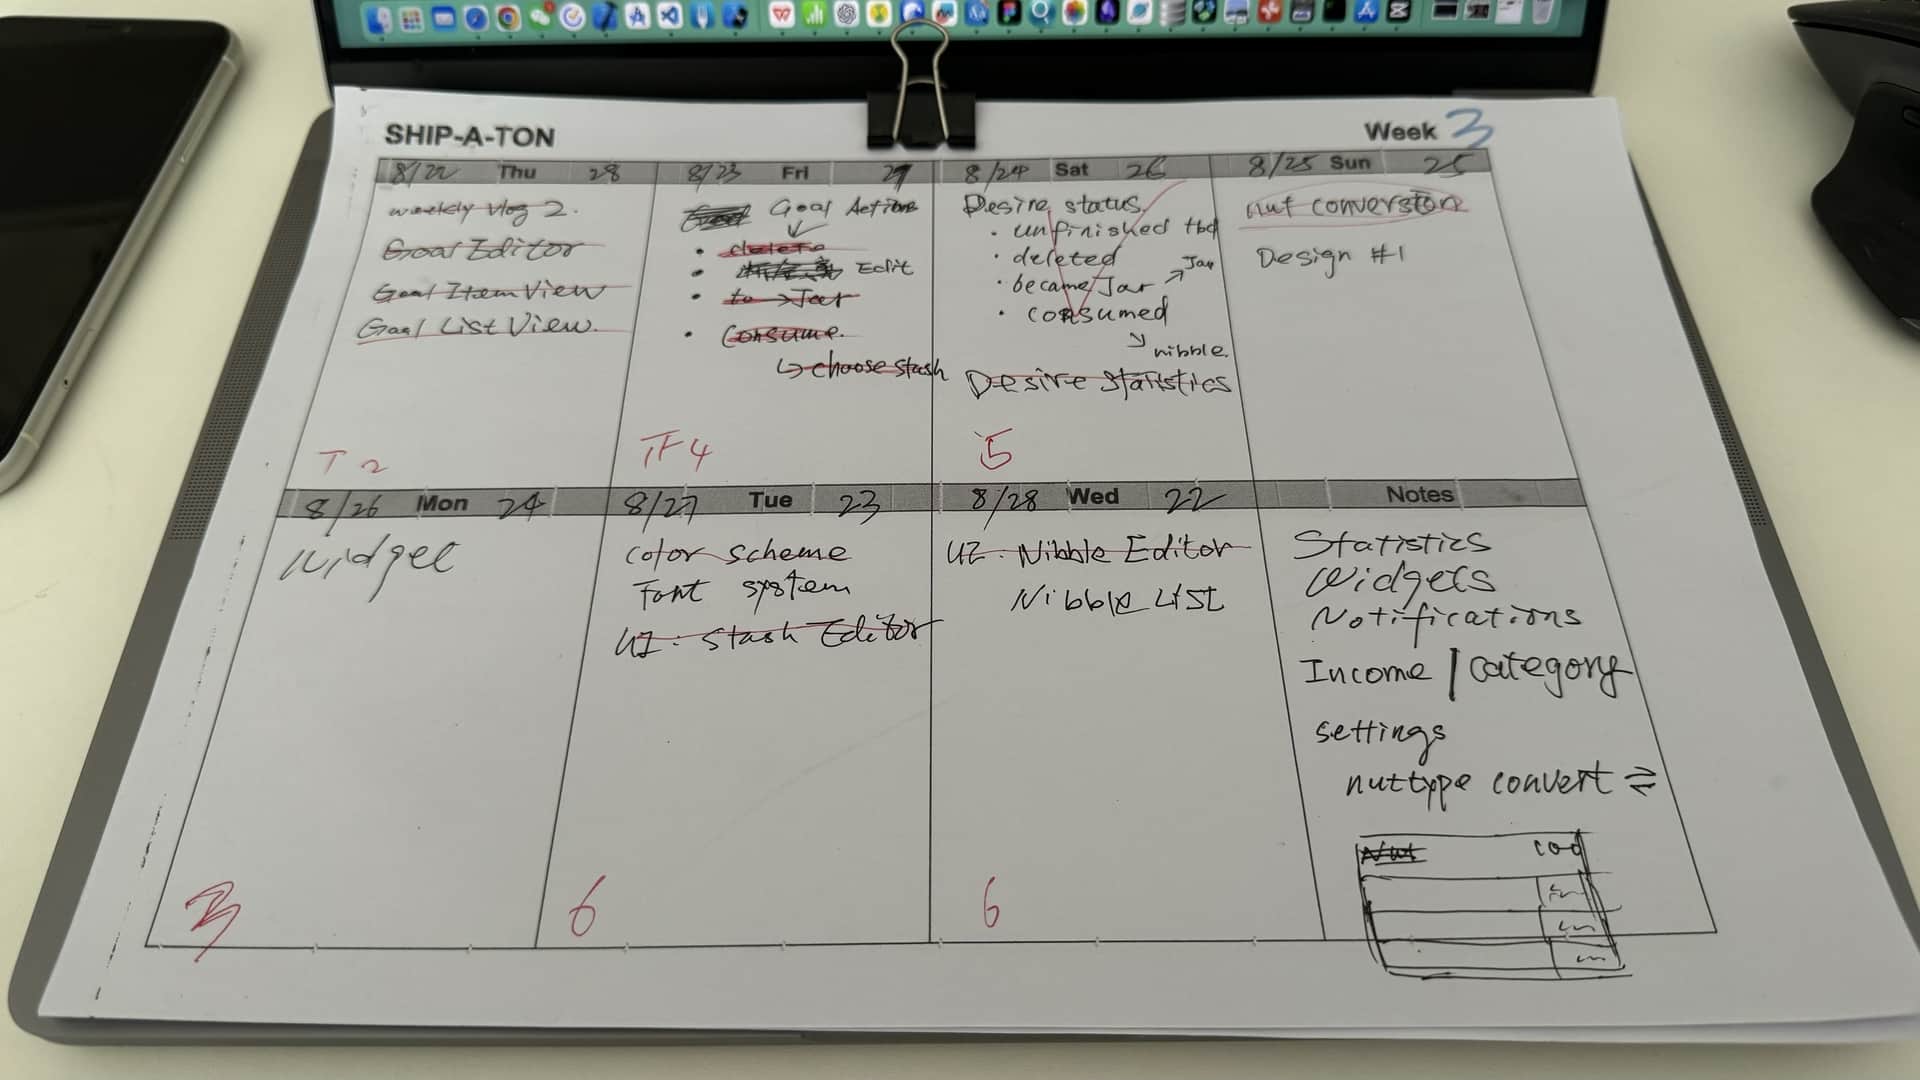 SHIP-A-TON
Week 3
8/22 Thu 28
weekly vlog 2.
Goal Editor
Goal Item View
Goal List View.
8/23 Fri 27
Goal Actions
• delete
• Edit
• to → Jar
• Consume.
↳ choose stash
4
8/24 Sat 26
Desire status
• unfinished tbd
• deleted
• became Jar ↗ Jar
• consumed
↘ nibble.
Desire statistics
5
8/25 Sun 25
nut conversion
Design #1
8/26 Mon 24
Widget
3
8/27 Tue 23
color scheme
Font system
UI: Stash Editor
6
8/28 Wed 22
UI: Nibble Editor
Nibble List
6
Notes
Statistics
Widgets
Notifications
Income / category
settings
nuttype convert ⇄
Nut